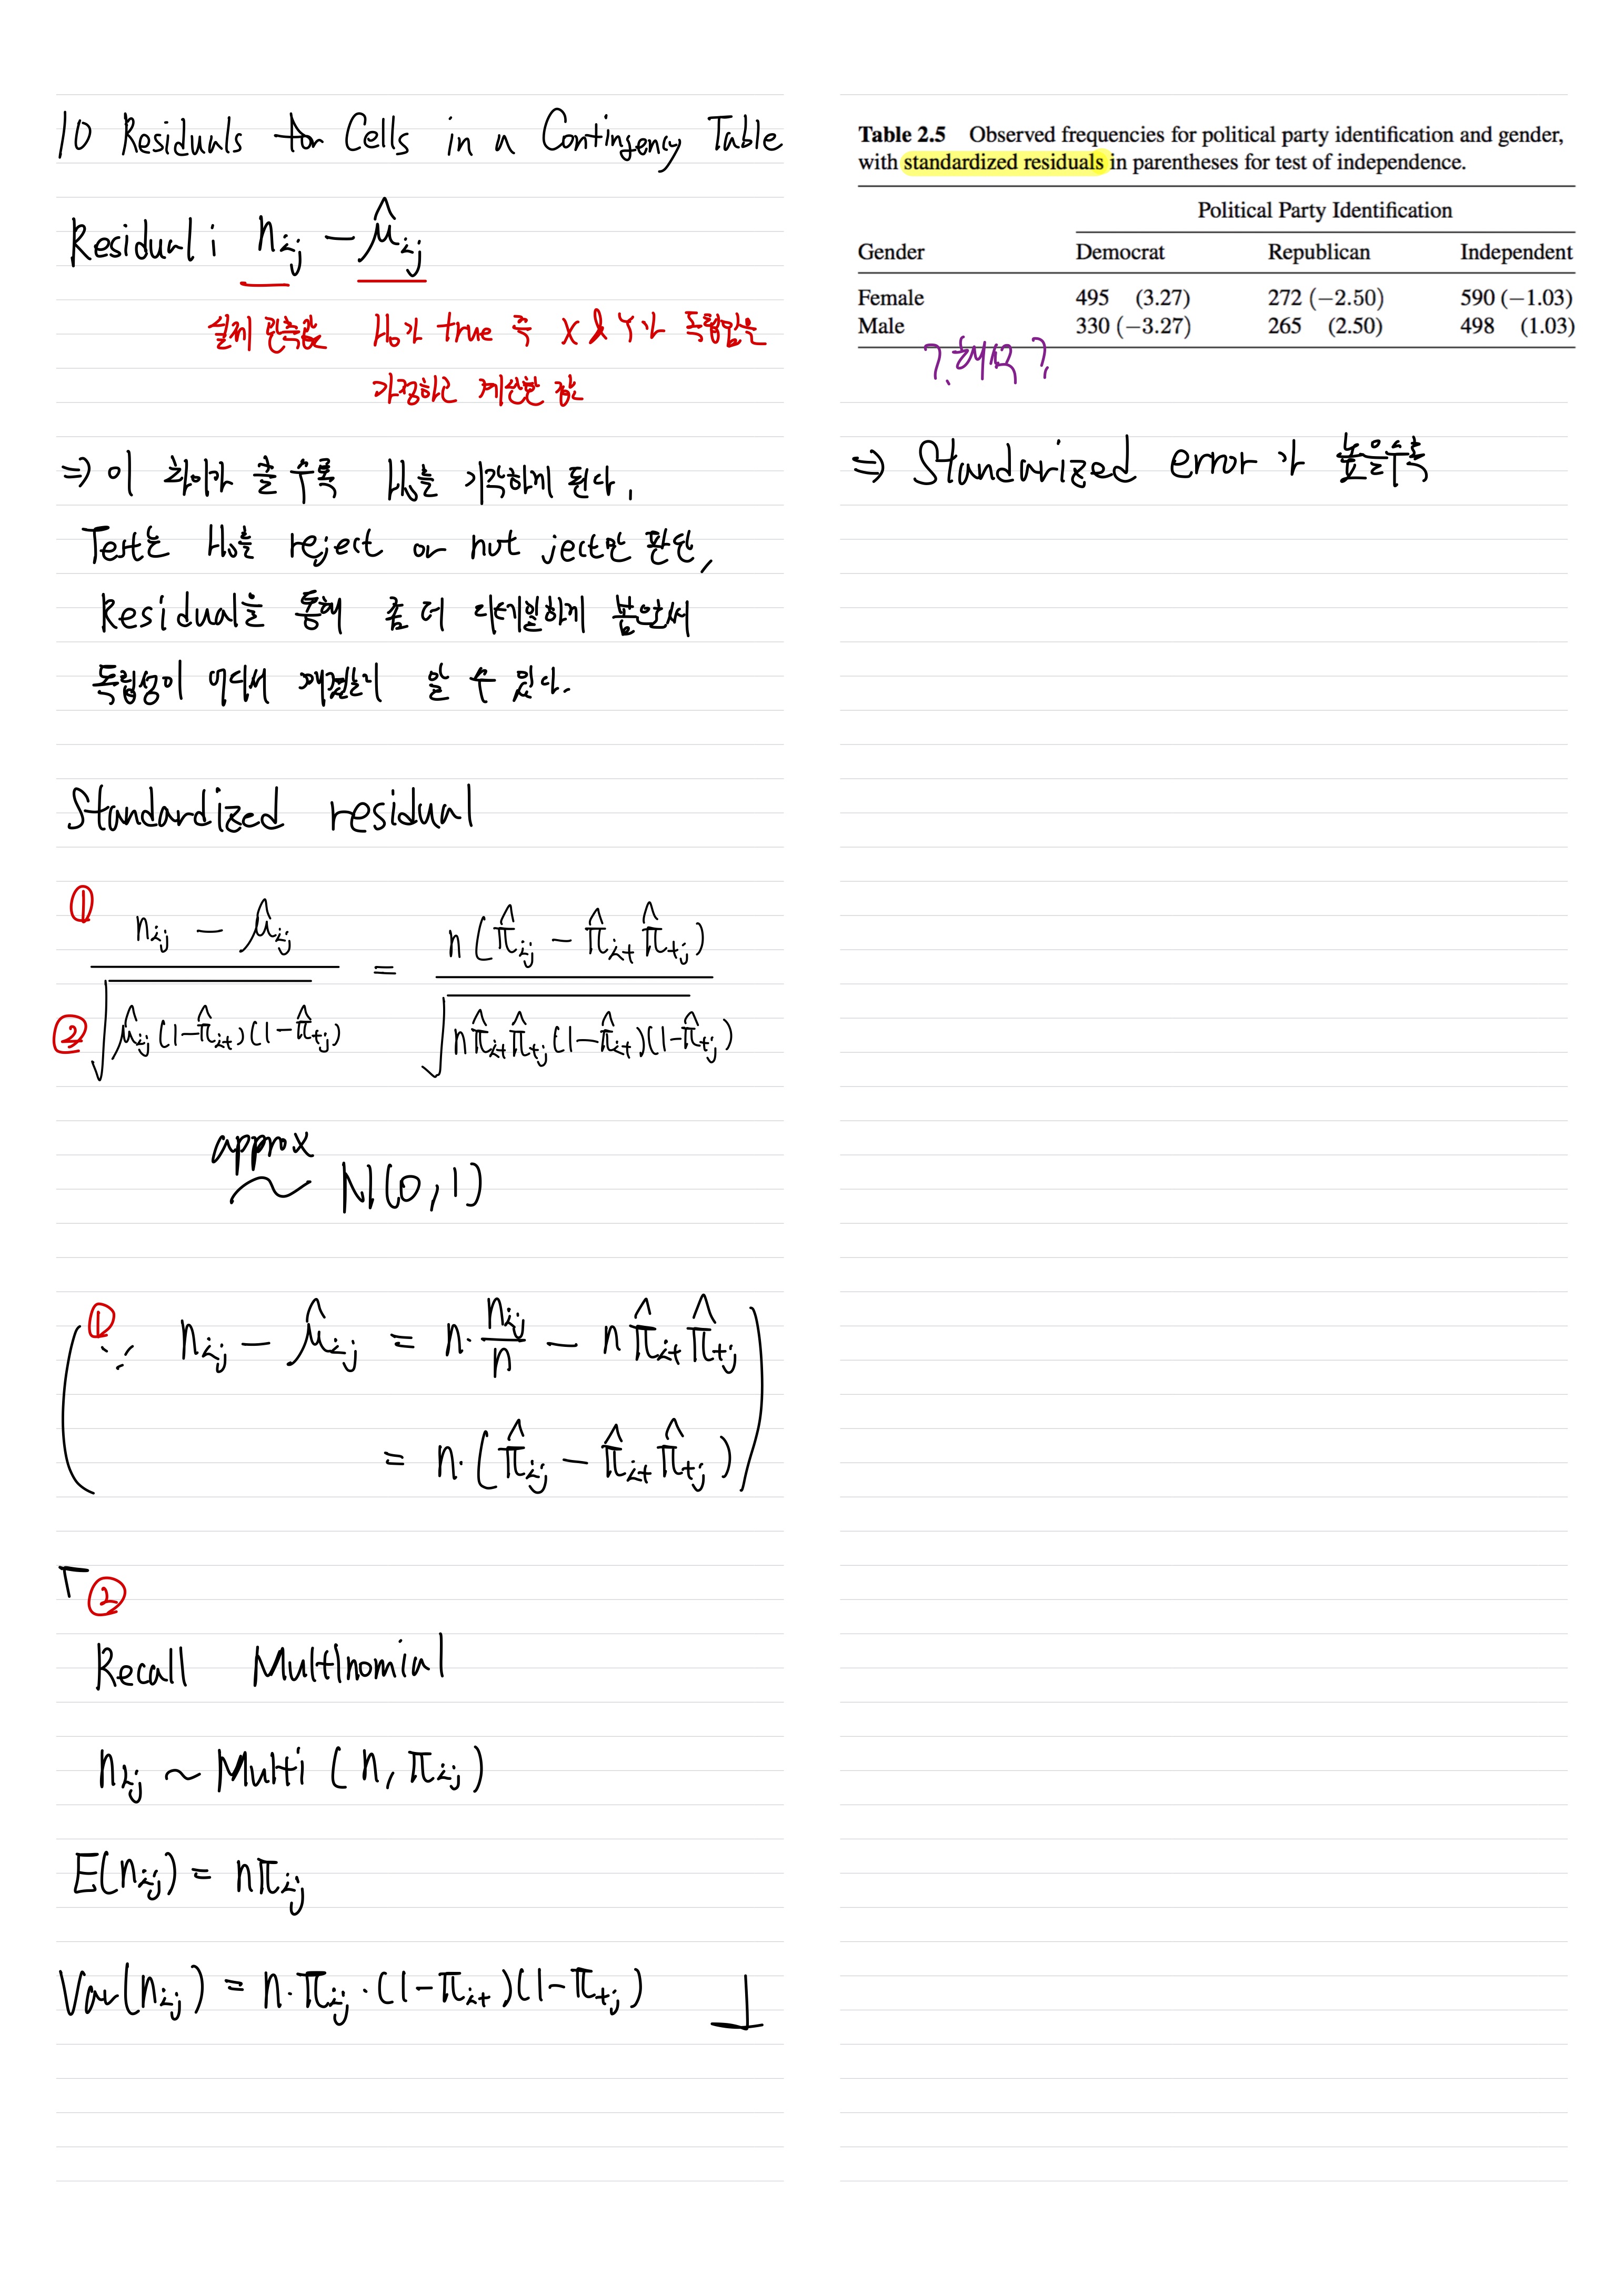 10 Residuals for Cells in a Contingency Table
Residual : n_ij − μ̂_ij
실제 관측값 H₀가 true 즉 X & Y가 독립임을
가정하고 계산한 값
⇒ 이 차이가 클 수록 H₀를 기각하게 된다.
Test는 H₀를 reject or not ject만 판단,
Residual을 통해 좀 더 디테일하게 봄으로써
독립성이 어디서 깨졌는지 알 수 있다.
Standardized residual
① (n_ij − μ̂_ij) / ② √(μ̂_ij (1−π̂_i+)(1−π̂_+j)) = n(π̂_ij − π̂_i+ π̂_+j) / √(n π̂_i+ π̂_+j (1−π̂_i+)(1−π̂_+j))
approx
~ N(0,1)
( ① ∵ n_ij − μ̂_ij = n· n_ij/n − n π̂_i+ π̂_+j
= n·(π̂_ij − π̂_i+ π̂_+j) )
「 ②
Recall Multinomial
n_ij ~ Multi ( n, π_ij )
E(n_ij) = nπ_ij
Var(n_ij) = n·π_ij·(1−π_i+)(1−π_+j) 」
Table 2.5 Observed frequencies for political party identification and gender,
with standardized residuals in parentheses for test of independence.
Political Party Identification
Gender Democrat Republican Independent
Female 495 (3.27) 272 (−2.50) 590 (−1.03)
Male 330 (−3.27) 265 (2.50) 498 (1.03)
?. 해석 ?.
⇒ Standarized error가 높을수록